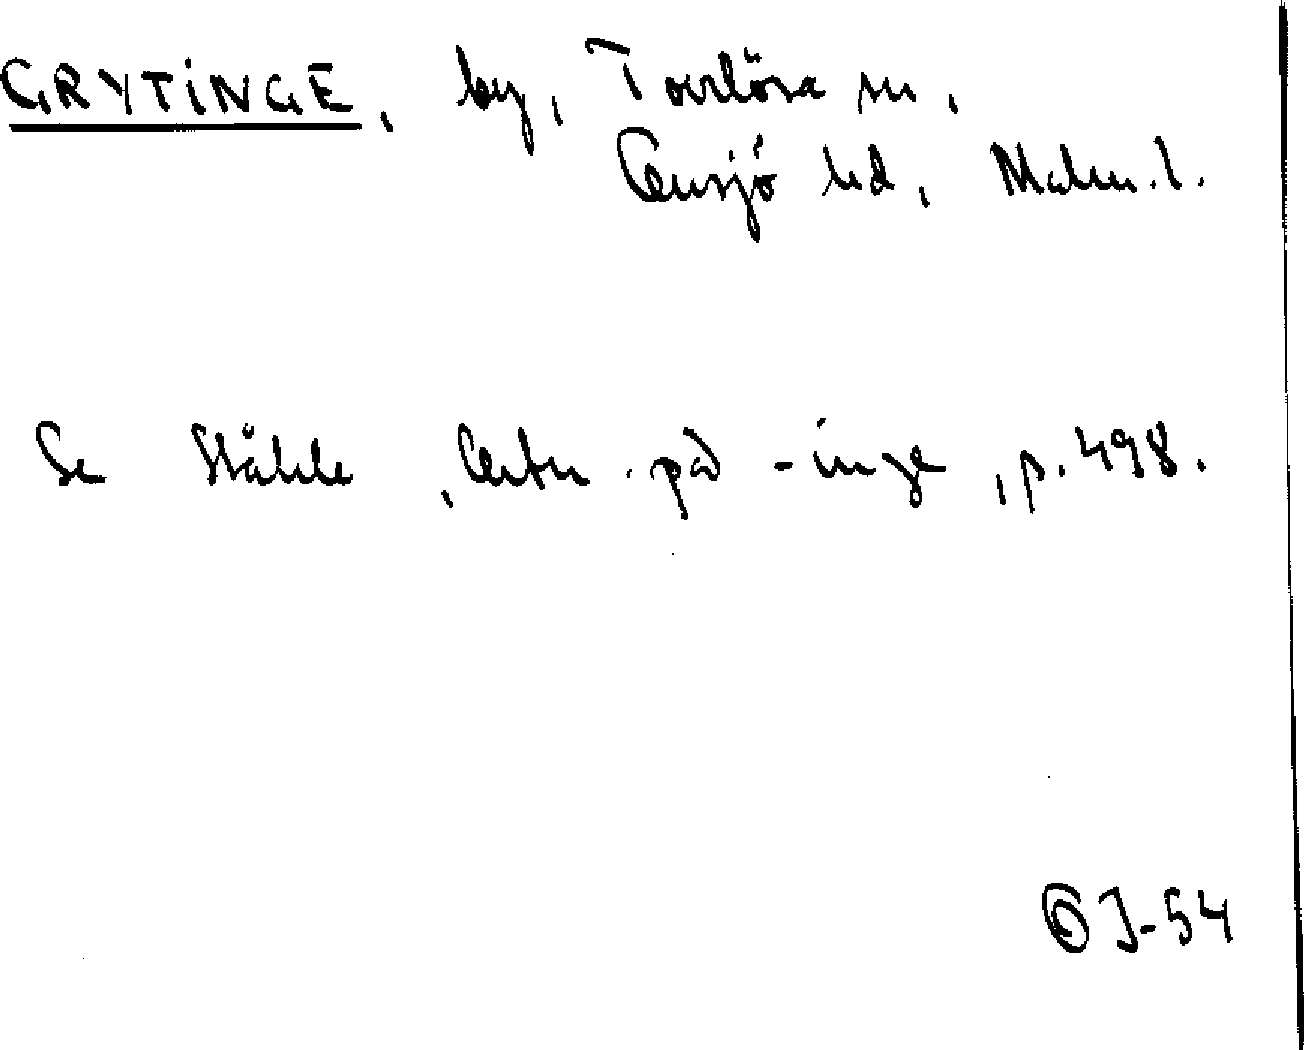 GRYTINGE, by, Torrlösa sn,
Onsjö hd, Malm. l.
Se Ståhle, Ortn. på -inge, p. 498.
OJ-54